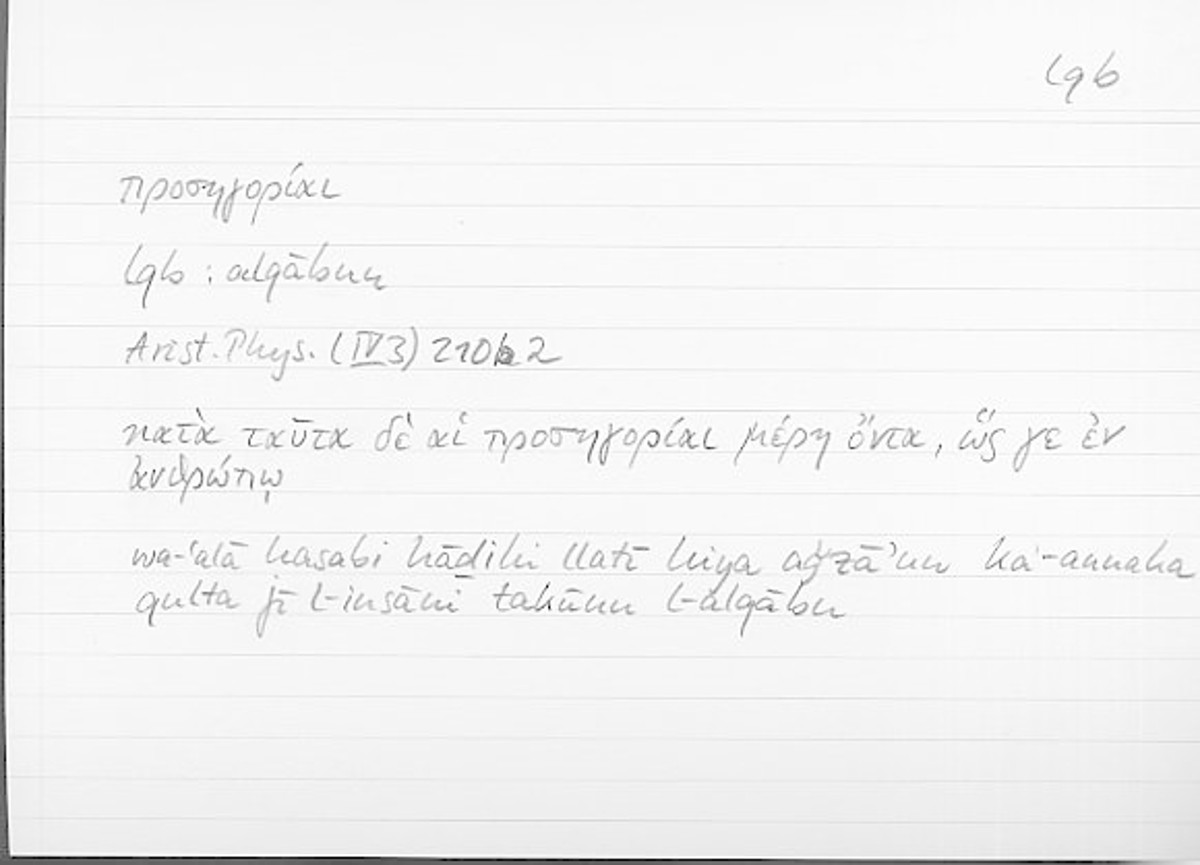 lqb
προσηγορίαι
lqb : alqābun
Arist. Phys. (IV 3) 210b2
κατὰ ταῦτα δὲ αἱ προσηγορίαι μέρη ὄντα, ὥς γε ἐν
ἀνθρώπῳ
wa-ʿalā ḥasabi hāḏihi llatī hiya aǧzāʾun ka-annaka
qulta fī l-insāni takūnu l-alqābu